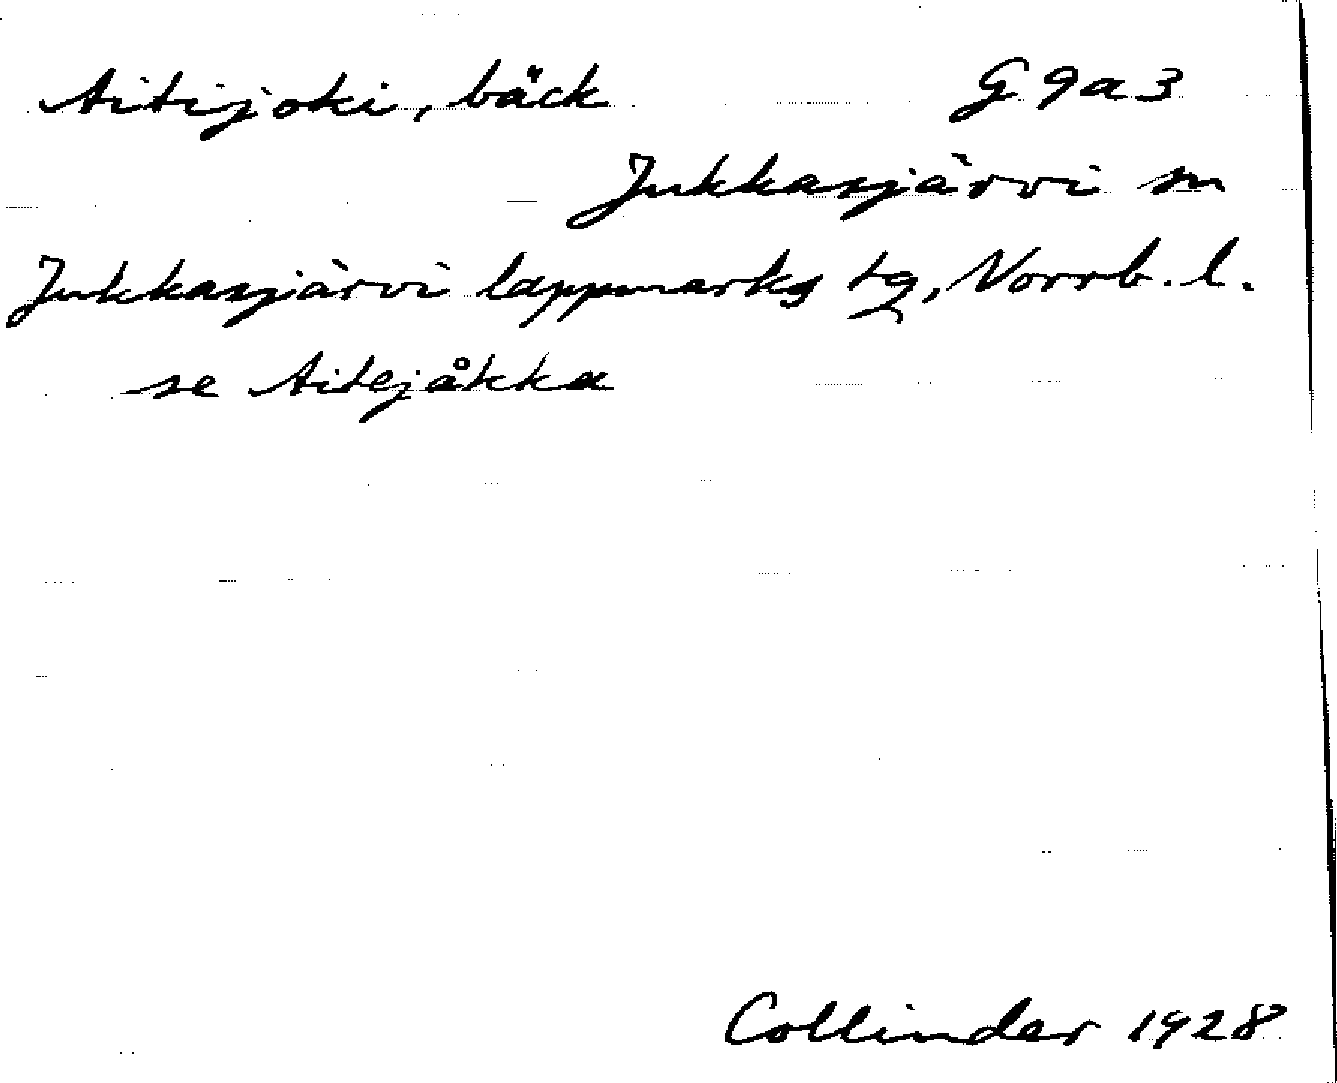 Aitijoki, bäck G 9 a 3
Jukkasjärvi sn
Jukkasjärvi lappmarks tg, Norrb. l.
se Aitejåkka
Collinder 1928